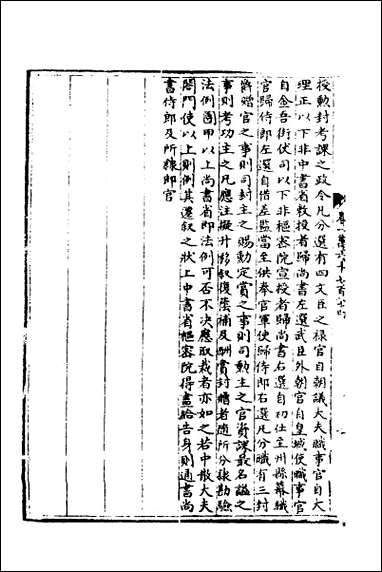 授勲封考課之政令凡分選有四文臣之祿官自朝議大夫職事官自大
理正以下非中書省敕授者歸尚書左選武臣外朝官自皇城使職事官
自金吾街仗司以下非樞密院宣授者歸尚書右選自初仕至州縣幕職
官歸侍郎左選自借差監當至供奉官軍使歸侍郎右選凡分職有三封
爵贈官之事則司封主之賜勳定賞之事則司勳主之官資課最名謚之
事則考功主之凡應注擬升移叙復蔭補及酬賞封贈者隨所分隸勘驗
法例團甲以上尚書省即法例可否不決應取裁者亦如之若中散大夫
閤門使以上則例其遷叙之狀上中書省樞密院得畫給告身則通書尚
書侍郎及所隸郎官